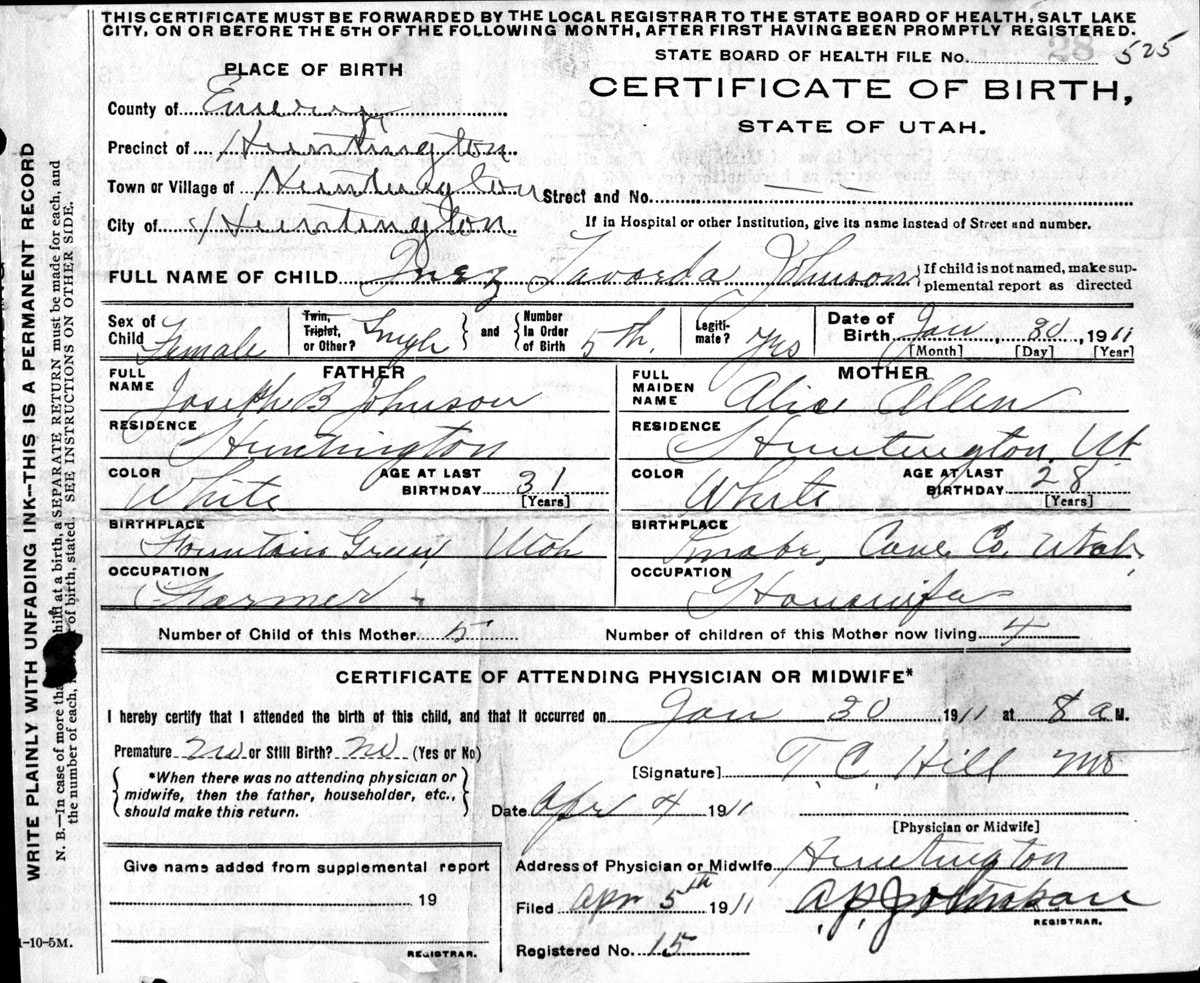 THIS CERTIFICATE MUST BE FORWARDED BY THE LOCAL REGISTRAR TO THE STATE BOARD OF HEALTH, SALT LAKE
CITY, ON OR BEFORE THE 5TH OF THE FOLLOWING MONTH, AFTER FIRST HAVING BEEN PROMPTLY REGISTERED.
STATE BOARD OF HEALTH FILE No. 28 525
PLACE OF BIRTH
CERTIFICATE OF BIRTH,
STATE OF UTAH.
County of Emery
Precinct of Huntington
Town or Village of Huntington Street and No. — —
City of Huntington If in Hospital or other Institution, give its name instead of Street and number.
FULL NAME OF CHILD Inez Johnson { If child is not named, make supplemental report as directed
Sex of Child Female Twin, Triplet, or Other? Single } and { Number in Order of Birth 5th. Legitimate? Yes Date of Birth Jan 30, 1911
[Month] [Day] [Year]
FATHER MOTHER
FULL NAME Joseph B Johnson FULL MAIDEN NAME Alice Allen
RESIDENCE Huntington RESIDENCE Huntington Ut
COLOR White AGE AT LAST BIRTHDAY 31 [Years] COLOR White AGE AT LAST BIRTHDAY 28 [Years]
BIRTHPLACE Fountain Green, Utah BIRTHPLACE Co. Utah,
OCCUPATION Farmer OCCUPATION Housewife
Number of Child of this Mother 5 Number of children of this Mother now living 4
CERTIFICATE OF ATTENDING PHYSICIAN OR MIDWIFE*
I hereby certify that I attended the birth of this child, and that it occurred on Jan 30, 1911 at 8 a M.
Premature no or Still Birth? no (Yes or No)
[Signature] T. C. Hill MD
{ *When there was no attending physician or
midwife, then the father, householder, etc.,
should make this return. }
Date Apr 4 1911
[Physician or Midwife]
Give name added from supplemental report
19
REGISTRAR.
Address of Physician or Midwife Huntington
Filed Apr 5th 1911 A.P. Johnson
REGISTRAR.
Registered No. 15
1-10-5M.
WRITE PLAINLY WITH UNFADING INK--THIS IS A PERMANENT RECORD
N. B.—In case of more than child at a birth, a SEPARATE RETURN must be made for each, and
the number of each, of birth, stated. SEE INSTRUCTIONS ON OTHER SIDE.